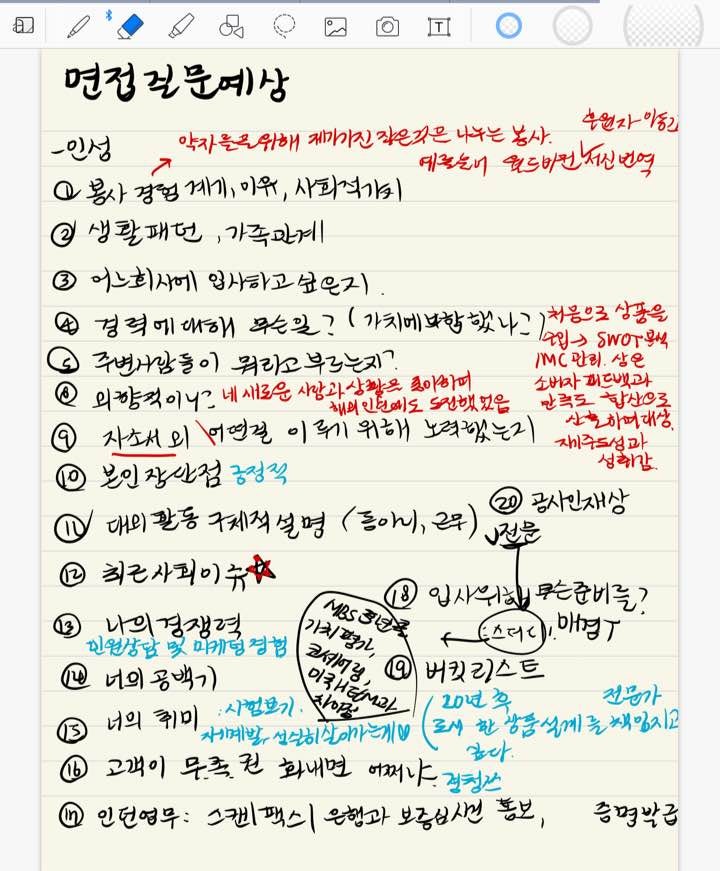 면접질문예상
-인성
약자들을 위해 제가가진 작은것은 나누는 봉사.
후원자-아동간
예를들어 월드비전 서신번역
① 봉사 경험 계기, 이유, 사회적가치
② 생활패턴, 가족관계
③ 어느회사에 입사하고 싶은지.
④ 경력에 대해 무슨일? (가치에 부합했나?)
처음으로 상품을
수입→ SWOT분석
IMC 관리. 삼은
소비자 피드백과
만족도 합산으로
재주도성과
성취감.
⑤ 주변사람들이 뭐라고 부르는지?
⑧ 외향적이니? 네 새로운 사람과 상황을 좋아하며
해외인턴에도 도전했었음
⑨ 자소서 외 어떤걸 이루기 위해 노력했는지
⑩ 본인 장단점 긍정적
⑪ 대외활동 구체적 설명 (동아리, 근무)
⑫ 최근 사회이슈
⑬ 나의 경쟁력
민원상담 및 마케팅경험
⑭ 너의 공백기
⑮ 너의 취미 : 시험보기.
자기계발, 성실히 살아가는게
⑯ 고객이 무족권 화내면 어쩌냐. 경청쓰
⑰ 인턴업무: 스캔 | 팩스 | 은행과 보증심사건 통보, 증명발급
MBS 3년
가치평가,
코세어링,
⑱ 입사위해 무슨준비를?
스터디 매경T
⑲ 버킷리스트
20년 후 전문가
로서 한 상품설계를 책임지고
싶다.
⑳ 공사인재상
전문